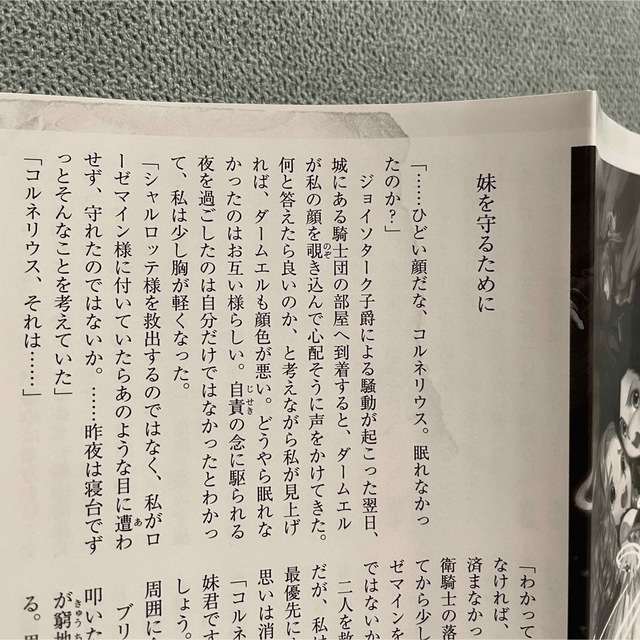 妹を守るために
「……ひどい顔だな、コルネリウス。眠れなかっ
たのか?」
ジョイソターク子爵による騒動が起こった翌日、
城にある騎士団の部屋へ到着すると、ダームエル
が私の顔を覗き込んで心配そうに声をかけてきた。
何と答えたら良いのか、と考えながら私が見上げ
れば、ダームエルも顔色が悪い。どうやら眠れな
かったのはお互い様らしい。自責の念に駆られる
夜を過ごしたのは自分だけではなかったとわかっ
て、私は少し胸が軽くなった。
「シャルロッテ様を救出するのではなく、私がロ
ーゼマイン様に付いていたらあのような目に遭わ
せず、守れたのではないか。……昨夜は寝台でず
っとそんなことを考えていた」
「コルネリウス、それは……」
「わかって
なければ、
済まなかっ
てから少し
衛騎士の落
ゼマインを
ではないか
二人を救
だが、私は
最優先に
思いは消
「コルネ
妹君です
しょう。
周囲に
ブリ
叩いた
が窮地
る。